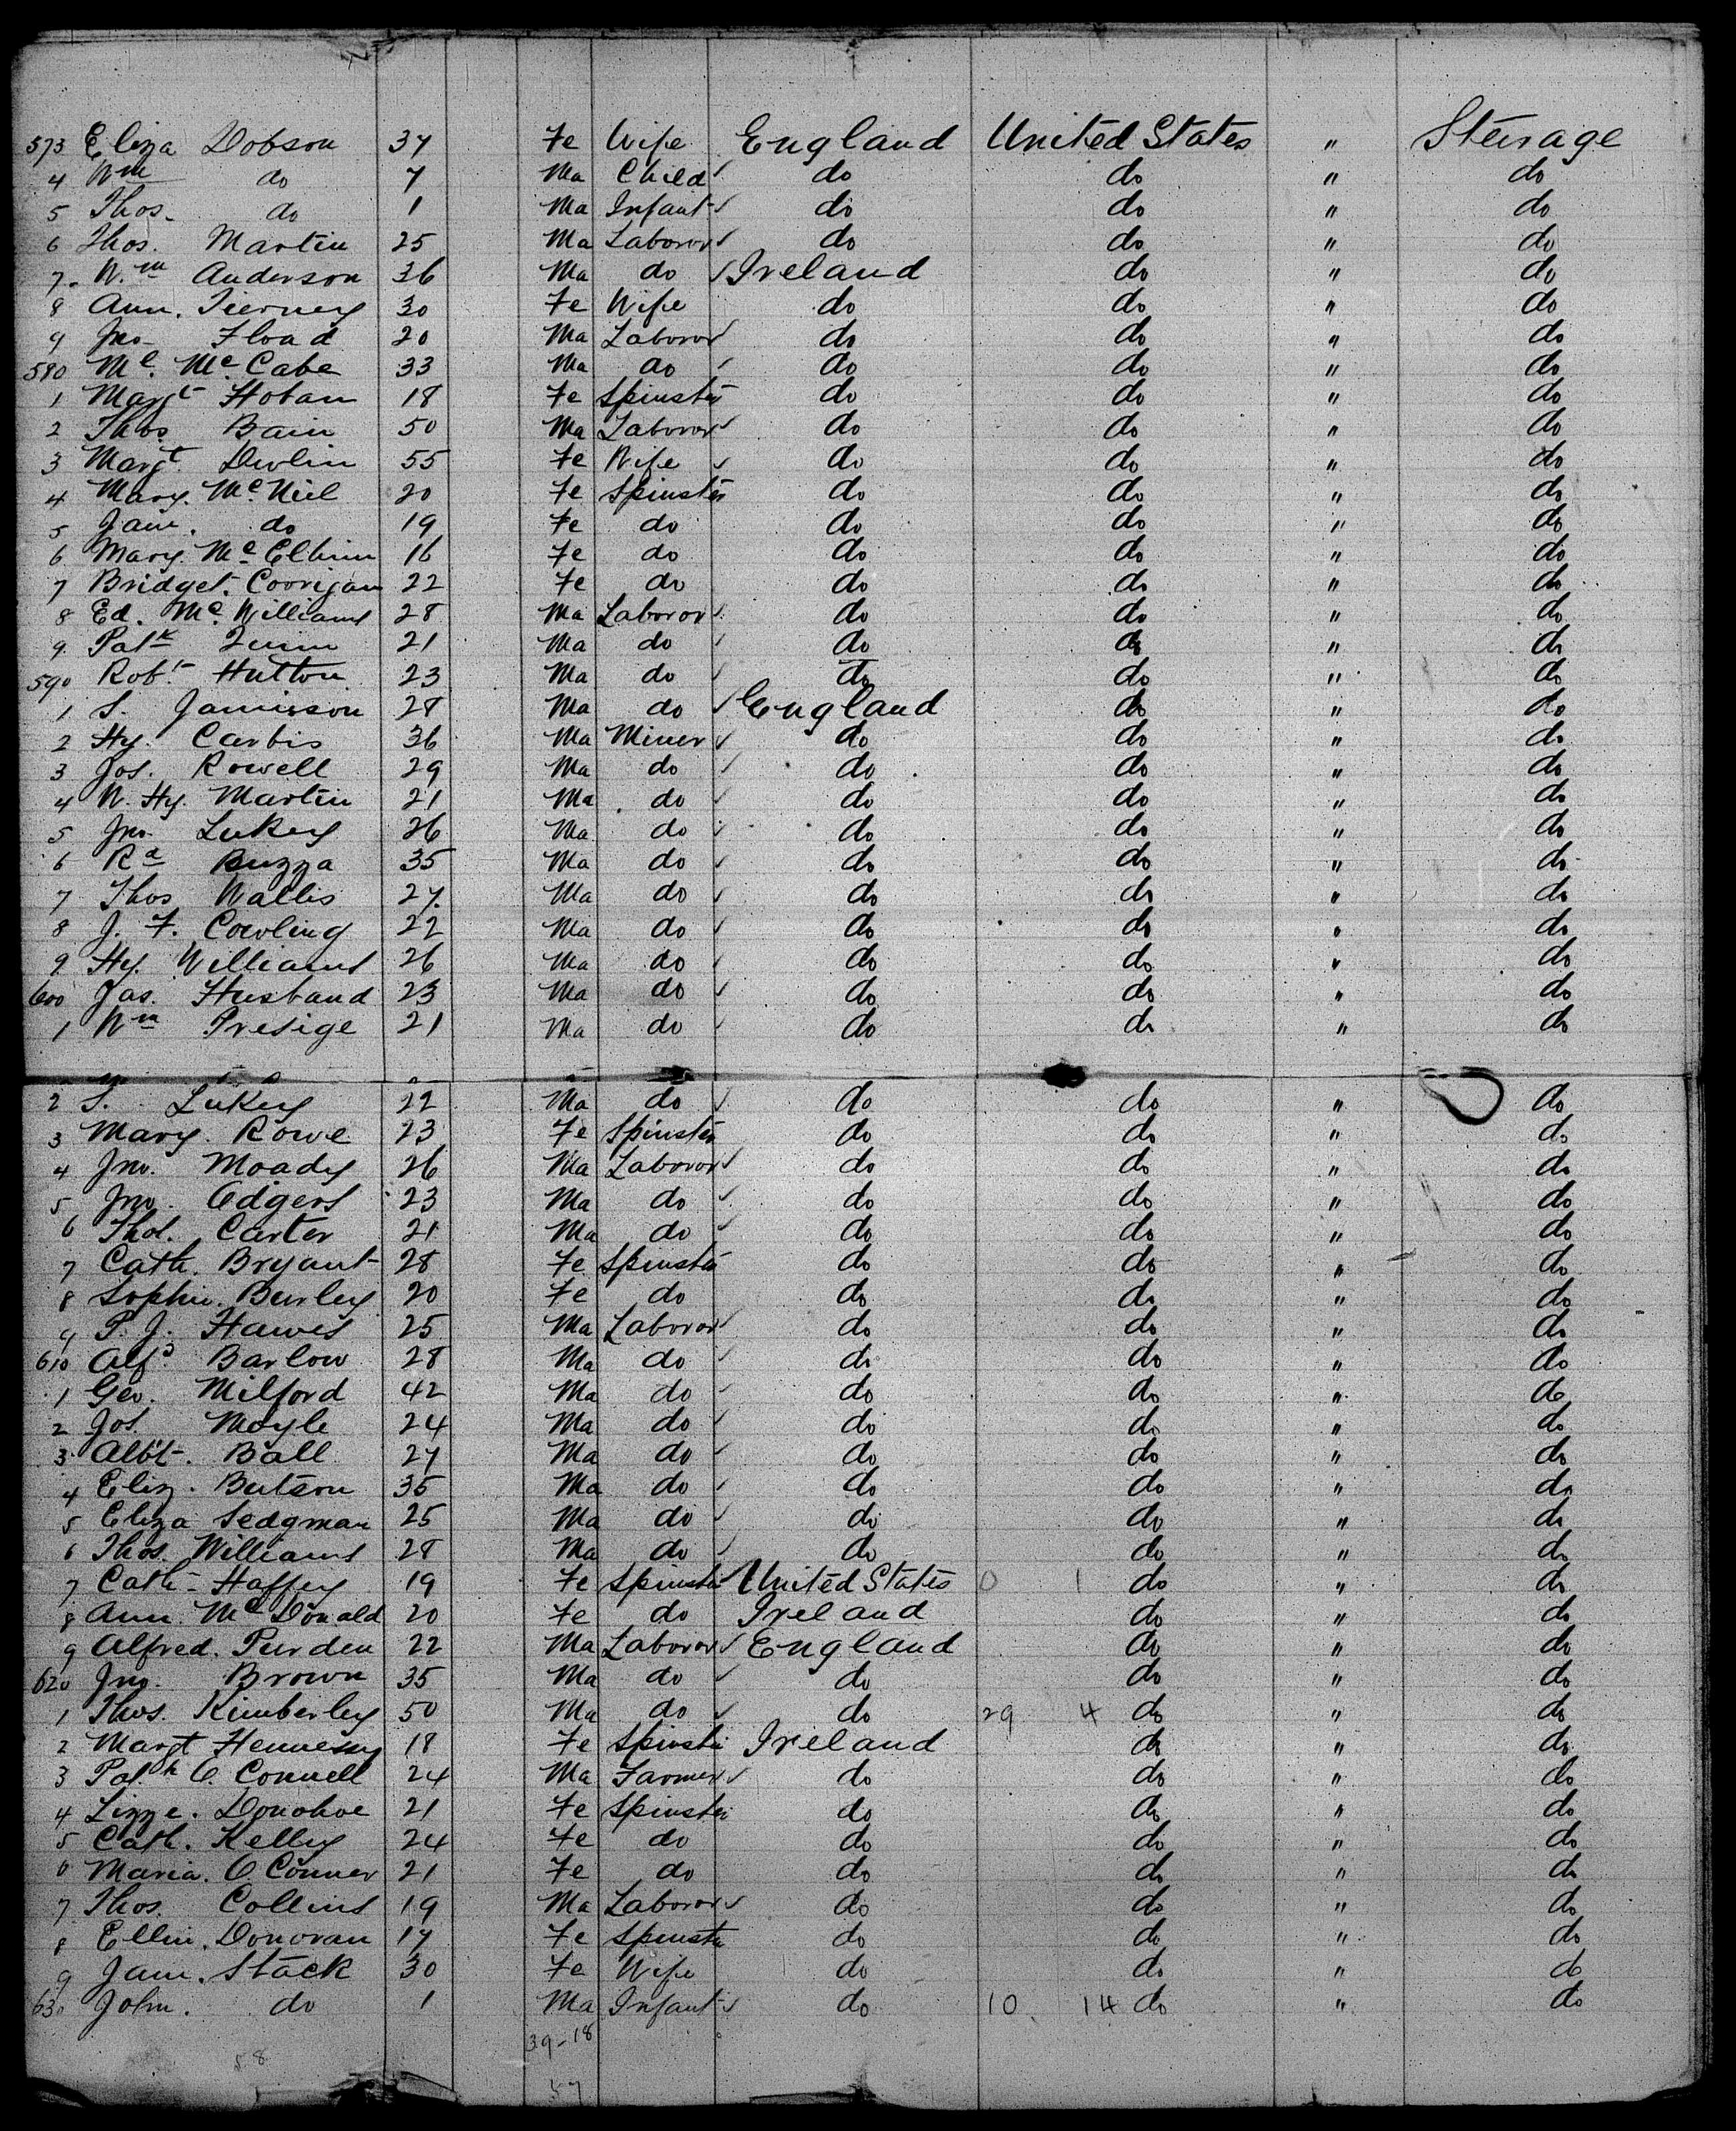 573 Eliza Dobson 37 Fe Wife England United States " Steurage
4 Wm do 7 Ma Child do do " do
5 Thos. do 1 Ma Infant do do " do
6 Thos. Martin 25 Ma Laboror do do " do
7. Wm Anderson 36 Ma do Ireland do " do
8 Ann. Tierney 30 Fe Wife do do " do
9 Jno- Fload 20 Ma Laboror do do " do
580 Ml. McCabe 33 Ma do do do " do
1 Margt Hoban 18 Fe Spinster do do " do
2 Thos. Bain 50 Ma Laboror do do " do
3 Margt. Devlin 55 Fe Wife do do " do
4 Mary. McNeil 20 Fe Spinster do do " do
5 Jane. do 19 Fe do do do " do
6 Mary. Mc 16 Fe do do do " do
7 Bridget. Corrigan 22 Fe do do do " do
8 Ed. McWilliams 28 Ma Laboror do do " do
9. Patk Quinn 21 Ma do do do " do
590 Robt Hutton 23 Ma do do do " do
1 S. Jamieson 28 Ma do England do " do
2 Hy. Carbis 36 Ma Miner do do " do
3 Jos. Rowell 29 Ma do do do " do
4 W. Hy. Martin 21 Ma do do do " do
5 Jno. Lukey 26 Ma do do do " do
6 Rd Buzza 35 Ma do do do " do
7 Thos Wallis 27. Ma do do do " do
8 J. F. Cowling 22 Ma do do do " do
9 Hy. Williams 26 Ma do do do " do
600 Jas. Husband 23 Ma do do do " do
1 Wm Presige 21 Ma do do do " do
2 S. Lukey 22 Ma do do do " do
3 Mary. Rowe 23 Fe Spinster do do " do
4 Jno. Moady 26 Ma Laboror do do " do
5 Jno. Odgers 23 Ma do do do " do
6 Thos. Carter 21 Ma do do do " do
7 Cath. Bryant 28 Fe Spinster do do " do
8 Sophie. Burley 20 Fe do do do " do
9 P. J. Hawes 25 Ma Laboror do do " do
610 Alfd Barlow 28 Ma do do do " do
1 Geo. Milford 42 Ma do do do " do
2 Jos. Moyle 24 Ma do do do " do
3 Albt. Ball 27 Ma do do do " do
4 Eliz. Butson 35 Ma do do do " do
5 Eliza Sedgman 25 Ma do do do " do
6 Thos. Williams 28 Ma do do do " do
7 Cath- Haffey 19 Fe Spinster United States 0 1 do " do
8 Ann. McDonald 20 Fe do Ireland do " do
9 Alfred. Purden 22 Ma Laboror England do " do
620 Jno. Brown 35 Ma do do do " do
1 Thos. Kimberley 50 Ma do do 29 4 do " do
2 Margt Hennessy 18 Fe Spinster Ireland do " do
3 Pat.k O. Connell 24 Ma Farmer do do " do
4 Lizze. Donohoe 21 Fe Spinster do do " do
5 Cath. Kelley 24 Fe do do do " do
6 Maria. O. Conner 21 Fe do do do " do
7 Thos. Collins 19 Ma Laboror do do " do
8 Ellin. Donovan 17 Fe Spinster do do " do
9 Jane. Stack 30 Fe Wife do do " do
630 John. do 1 Ma Infant do 10 14 do " do
39-18
58
57